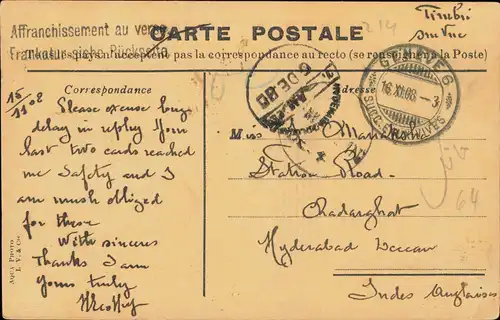 Affranchissement au verso
Frankatur siehe Rückseite
CARTE POSTALE
214
Timbre
sur vue
Tous les pays n'acceptent pas la correspondance au recto (se renseigner à la Poste)
Correspondance
Adresse
GENÈVE 6
16 XI.08. - 3
SUCC. EAUX-VIVES
6 DE 08
15/11 08
Please excuse
delay in reply Your
last two cards reached
me Safety and I
am much obliged
for these
With sincere
Thanks I am
Yours truly
Miss
Station Road
Chadarghat
Hyderabad Deccan
Indes Anglaises
64
AQUA PHOTO
L. V. & Cie